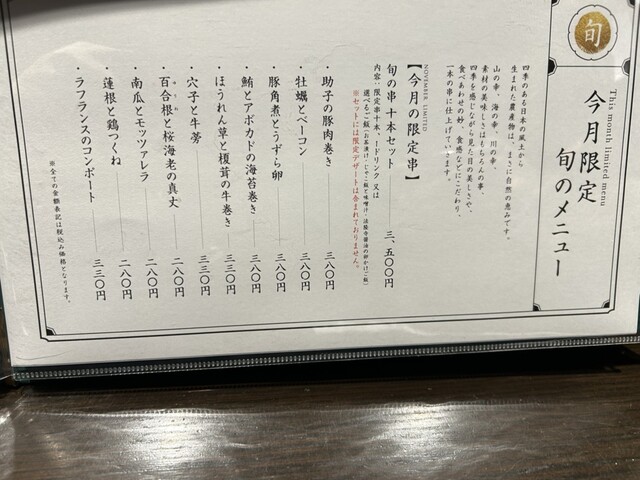 旬
This month limited menu
今月限定
旬のメニュー
四季のある日本の風土から
生まれた農産物は、まさに自然の恵みです。
山の幸、海の幸、川の幸、
素材の美味しさはもちろんの事、
四季を感じながら見た目の美しさや、
食べあわせの妙、食感などにこだわり、
一本の串に仕上げていきます。
NOVEMBER LIMITED
【今月の限定串】
旬の串 十本セット 三、五〇〇円
内容：限定串十本、1ドリンク 又は
※セットには限定デザートは含まれておりません。
・助子の豚肉巻き 三八〇円
・牡蠣とベーコン 三八〇円
・豚角煮とうずら卵 三八〇円
・鮪とアボカドの海苔巻き 三八〇円
・ほうれん草と榎茸の牛巻き 三三〇円
・穴子と牛蒡 三三〇円
・百合根と桜海老の真丈 二八〇円
・南瓜とモッツァレラ 二八〇円
・蓮根と鶏つくね 二八〇円
・ラフランスのコンポート 三三〇円
※全ての金額表記は税込み価格となります。